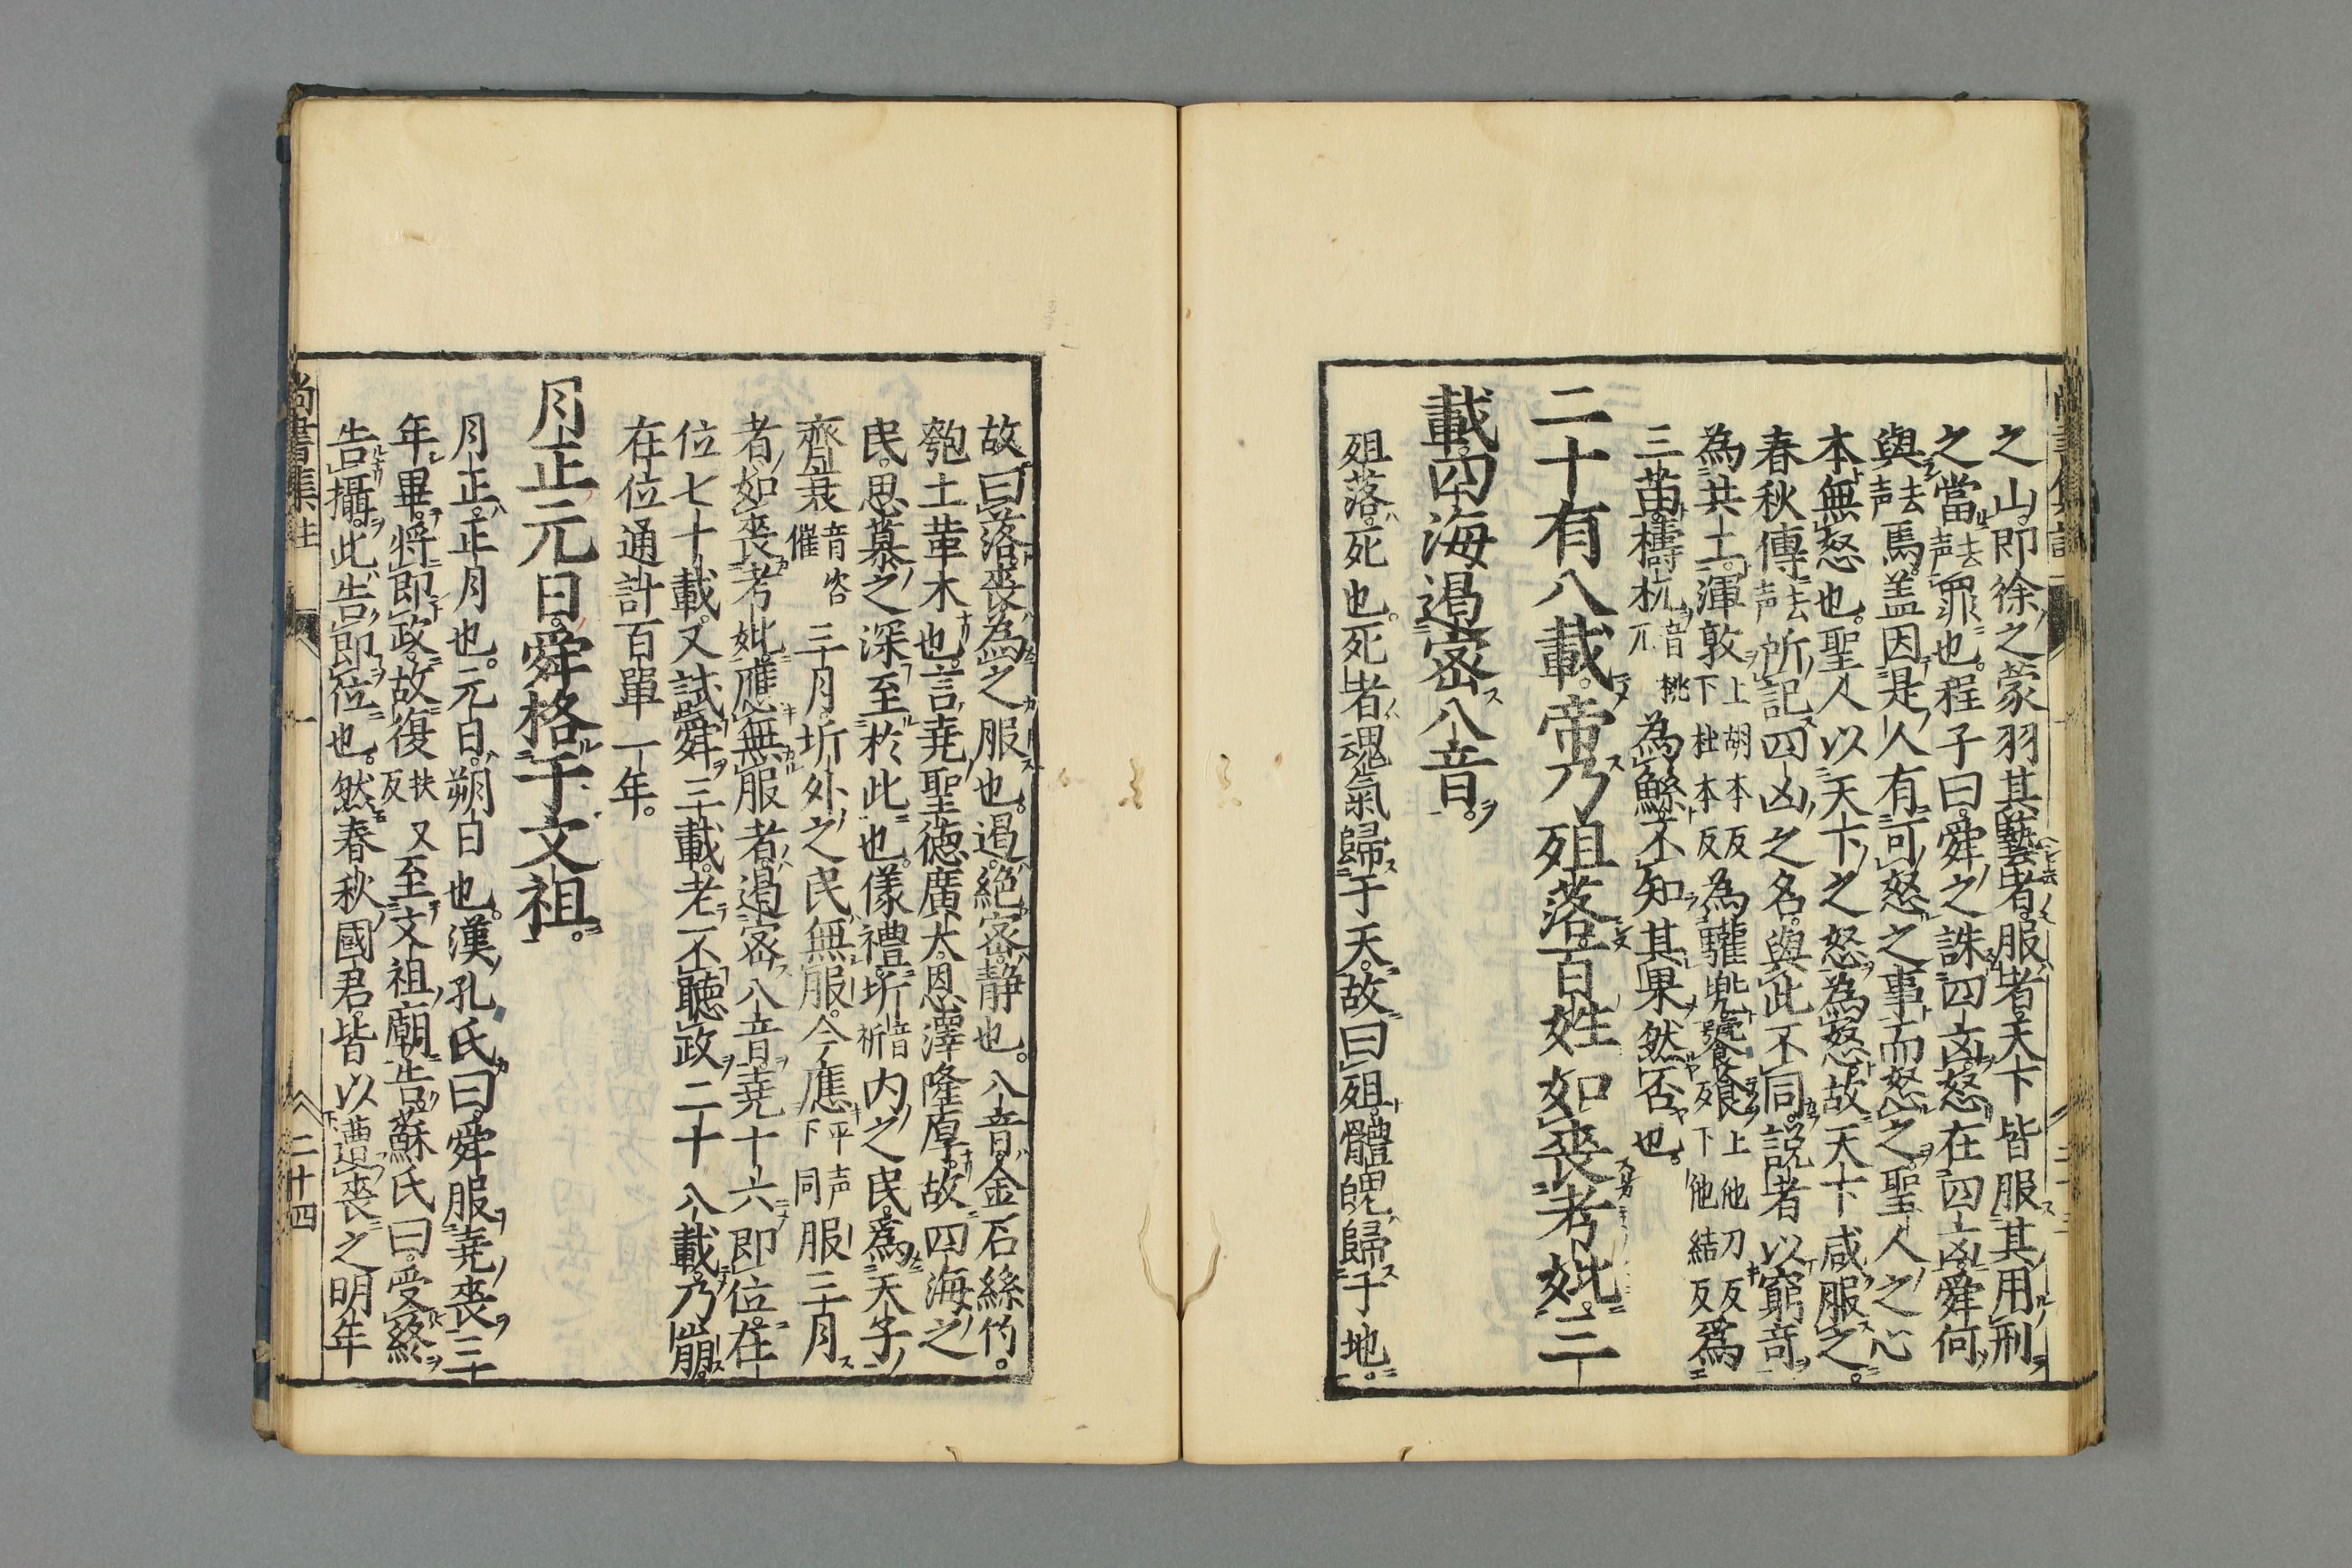 之山即徐之蒙羽其藝者服者天下皆服其用刑
之當去声罪也程子曰舜之誅四凶怒在四凶舜何
與去声焉盖因是人有可怒之事而怒之聖人之心
本無怒也聖人以天下之怒為怒故天下咸服之
春秋傳去声所記四凶之名與此不同說者以窮奇
為共工渾敦上胡本反下杜本反為驩兜饕餮上他刀反下他結反為
三苗檮杌音桃兀為鯀不知其果然否也
二十有八載帝乃殂落百姓如喪考妣三
載四海遏密八音
殂落死也死者魂氣歸于天故曰殂體魄歸于地
故曰落喪為之服也遏絶密静也八音金石絲竹
匏土革木也言堯聖德廣大恩澤隆厚故四海之
民思慕之深至於此也儀禮圻音祈内之民為天子
齊衰音咨催三月圻外之民無服今應平声下同服三月
者如喪考妣應無服者遏密八音堯十六即位在
位七十載又試舜三載老不聽政二十八載乃崩
在位通計百單一年
月正元日舜格于文祖
月正正月也元日朔日也漢孔氏曰舜服堯喪三
年畢將即政故復扶又反至文祖廟告蘇氏曰受終
告攝此告即位也然春秋國君皆以遭喪之明年
尚書集註
二十四